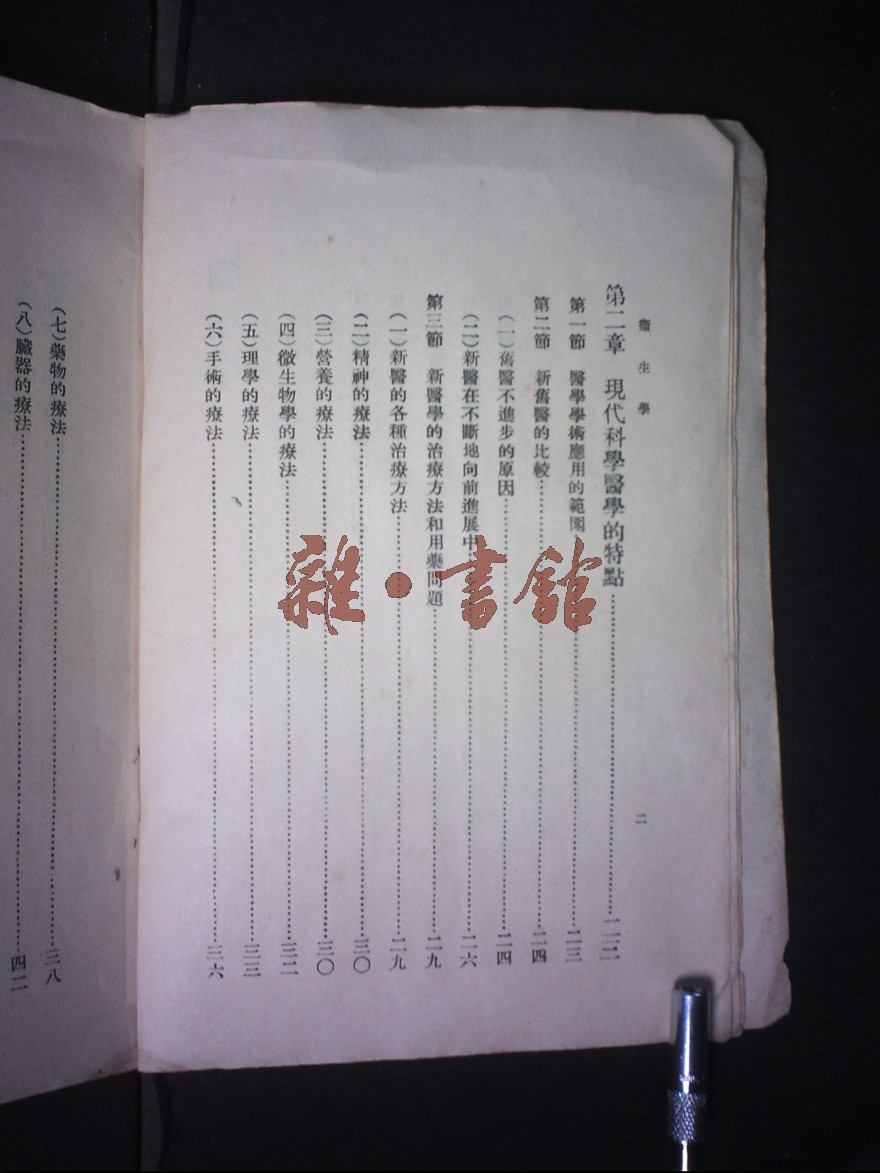 衞生學
二
第二章 現代科學醫學的特點……二二
第一節 醫學學術應用的範圍……二三
第二節 新舊醫的比較……二四
(一)舊醫不進步的原因……二四
(二)新醫在不斷地向前進展中……二六
第三節 新醫學的治療方法和用藥問題……二九
(一)新醫的各種治療方法……二九
(二)精神的療法……三〇
(三)營養的療法……三〇
(四)微生物學的療法……三二
(五)理學的療法……三三
(六)手術的療法……三六
(七)藥物的療法……三八
(八)臟器的療法……四二
雜·書館